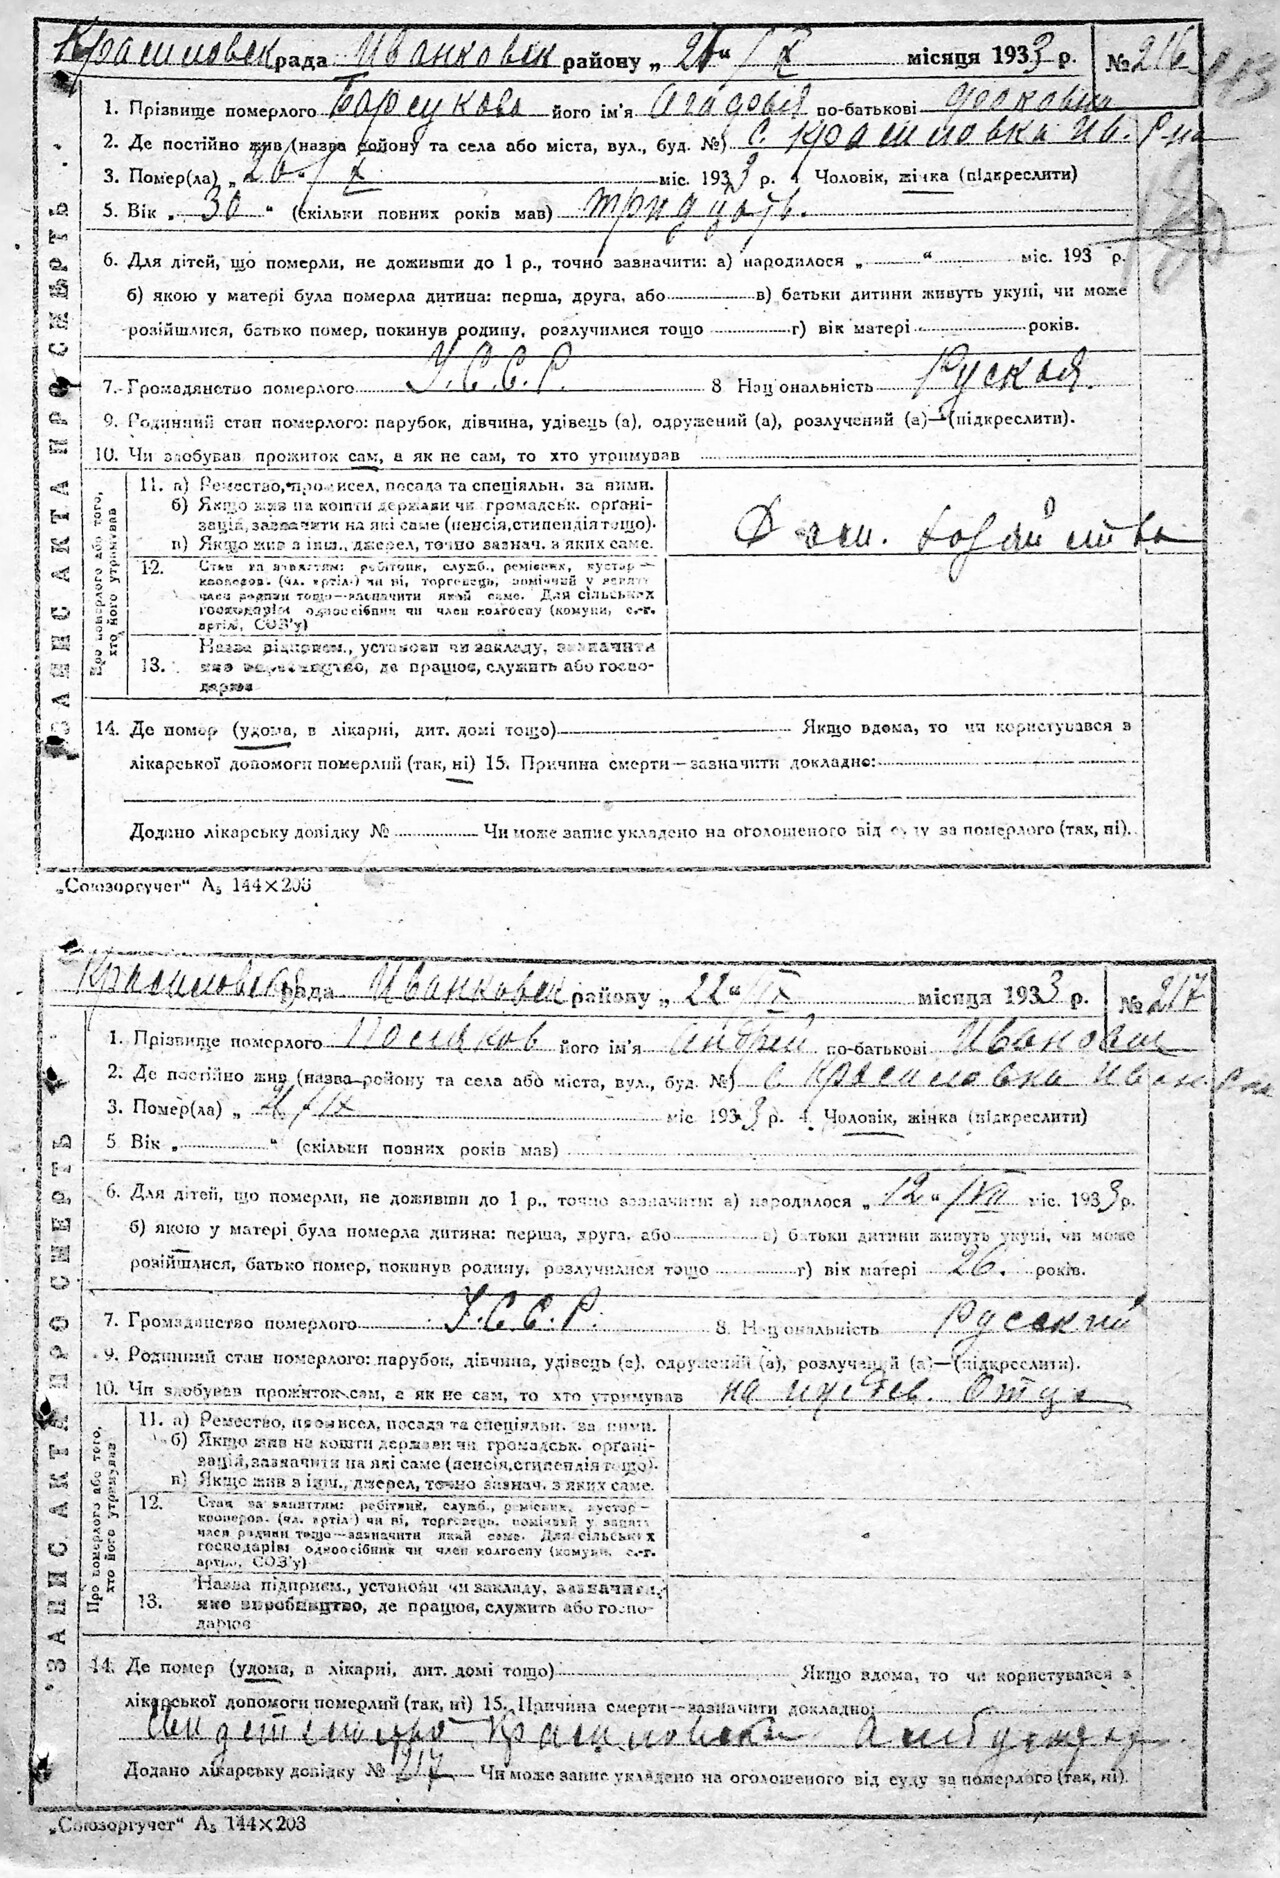 Красиловск рада Иванковск району „ 21 “ / X місяця 1933 р. № 216
1. Прізвище померлого Барсукова його ім'я Агадовія по-батькові
2. Де постійно жив (назва району та села або міста, вул., буд. №) с. Красиловка Ив. р-на
3. Помер(ла) „ 20 “ / X міс. 1933 р. 4. Чоловік, жінка (підкреслити)
5. Вік „ 30 “ (скільки повних років мав) тридцать.
6. Для дітей, що померли, не доживши до 1 р., точно зазначити: а) народилося „ “ міс. 193 р.
б) якою у матері була померла дитина: перша, друга, або в) батьки дитини живуть укупі, чи може
розійшлися, батько помер, покинув родину, розлучилися тощо г) вік матері років.
7. Громадянство померлого У.С.С.Р. 8 Національність Руская.
9. Родинний стан померлого: парубок, дівчина, удівець (а), одружений (а), розлучений (а)—(підкреслити).
10. Чи здобував прожиток сам, а як не сам, то хто утримував
ЗАПИС АКТА ПРО СМЕРТЬ
Про померлого або того, хто його утримував
11. а) Ремество, промисел, посада та спеціяльн. за ними.
б) Якщо жив на кошти держави чи громадськ. органі-
зацій, зазначити на які саме (пенсія, стипендія тощо).
в) Якщо жив з інш., джерел, точно зазнач. з яких саме.
Дом. хозяйство
12. Стан за заняттям: робітник, служб., ремісник, кустар—
кооперов. (чл. артілі) чи ні, торговець, помічний у занят.
член родини тощо—зазначити який саме. Для сільських
господарів: одноосібник чи член колгоспу (комуни, с.-г.
артілі, СОЗ'у)
13. Назва підприєм., установи чи закладу, зазначити
яке виробництво, де працює, служить або госпо-
дарює
14. Де помер (удома, в лікарні, дит. домі тощо) Якщо вдома, то чи користувався з
лікарської допомоги померлий (так, ні) 15. Причина смерти—зазначити докладно:
Додано лікарську довідку № Чи може запис укладено на оголошеного від суду за померлого (так, ні).
„Союзоргучет“ А₅ 144×203
Красиловская рада Иванковск району „ 22 “ / IX місяця 1933 р. № 217
1. Прізвище померлого Поляков його ім'я Андрей по-батькові Иванович
2. Де постійно жив (назва району та села або міста, вул., буд. №) с. Красиловка Иванк. р-на
3. Помер(ла) „ 21 / IX міс. 1933 р. 4. Чоловік, жінка (підкреслити)
5 Вік „ “ (скільки повних років мав)
6. Для дітей, що померли, не доживши до 1 р., точно зазначити: а) народилося „ 12 “ / VII міс. 1933 р.
б) якою у матері була померла дитина: перша, друга, або в) батьки дитини живуть укупі, чи може
розійшлися, батько помер, покинув родину, розлучилися тощо г) вік матері 26. років.
7. Громадянство померлого У.С.С.Р. 8. Національність Русский
9. Родинний стан померлого: парубок, дівчина, удівець (а), одружений (а), розлучений (а)—(підкреслити).
10. Чи здобував прожиток сам, а як не сам, то хто утримував на иждев. Отца
ЗАПИС АКТА ПРО СМЕРТЬ
Про померлого або того, хто його утримував
11. а) Ремество, промисел, посада та спеціяльн. за ними.
б) Якщо жив на кошти держави чи громадськ. органі-
зацій, зазначити на які саме (пенсія, стипендія тощо).
в) Якщо жив з інш., джерел, точно зазнач. з яких саме.
12. Стан за заняттям: робітник, служб., ремісник, кустар—
кооперов. (чл. артілі) чи ні, торговець, помічний у занят.
член родини тощо—зазначити який саме. Для сільських
господарів: одноосібник чи член колгоспу (комуни, с.-г.
артілі, СОЗ'у)
13. Назва підприєм., установи чи закладу, зазначити,
яке виробництво, де працює, служить або госпо-
дарює
14. Де помер (удома, в лікарні, дит. домі тощо) Якщо вдома, то чи користувався з
лікарської допомоги померлий (так, ні) 15. Причина смерти—зазначити докладно:
Свидетельство Красиловской Амбулатор.
Додано лікарську довідку № 217 Чи може запис укладено на оголошеного від суду за померлого (так, ні).
„Союзоргучет“ А₅ 144×203